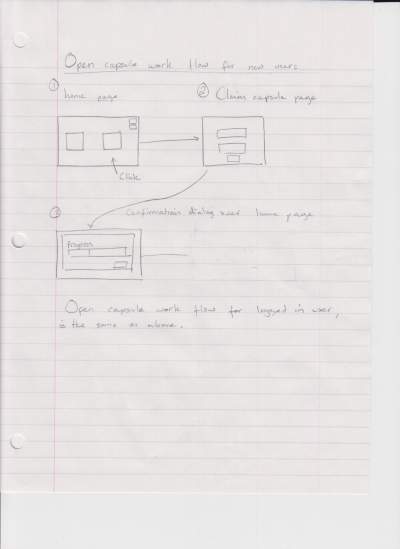 Open capsule work flow for new users
① home page
② Claim capsule page
Click
③ Confirmation dialog user home page
Progress
Open capsule work flow for logged in user,
is the same as above.